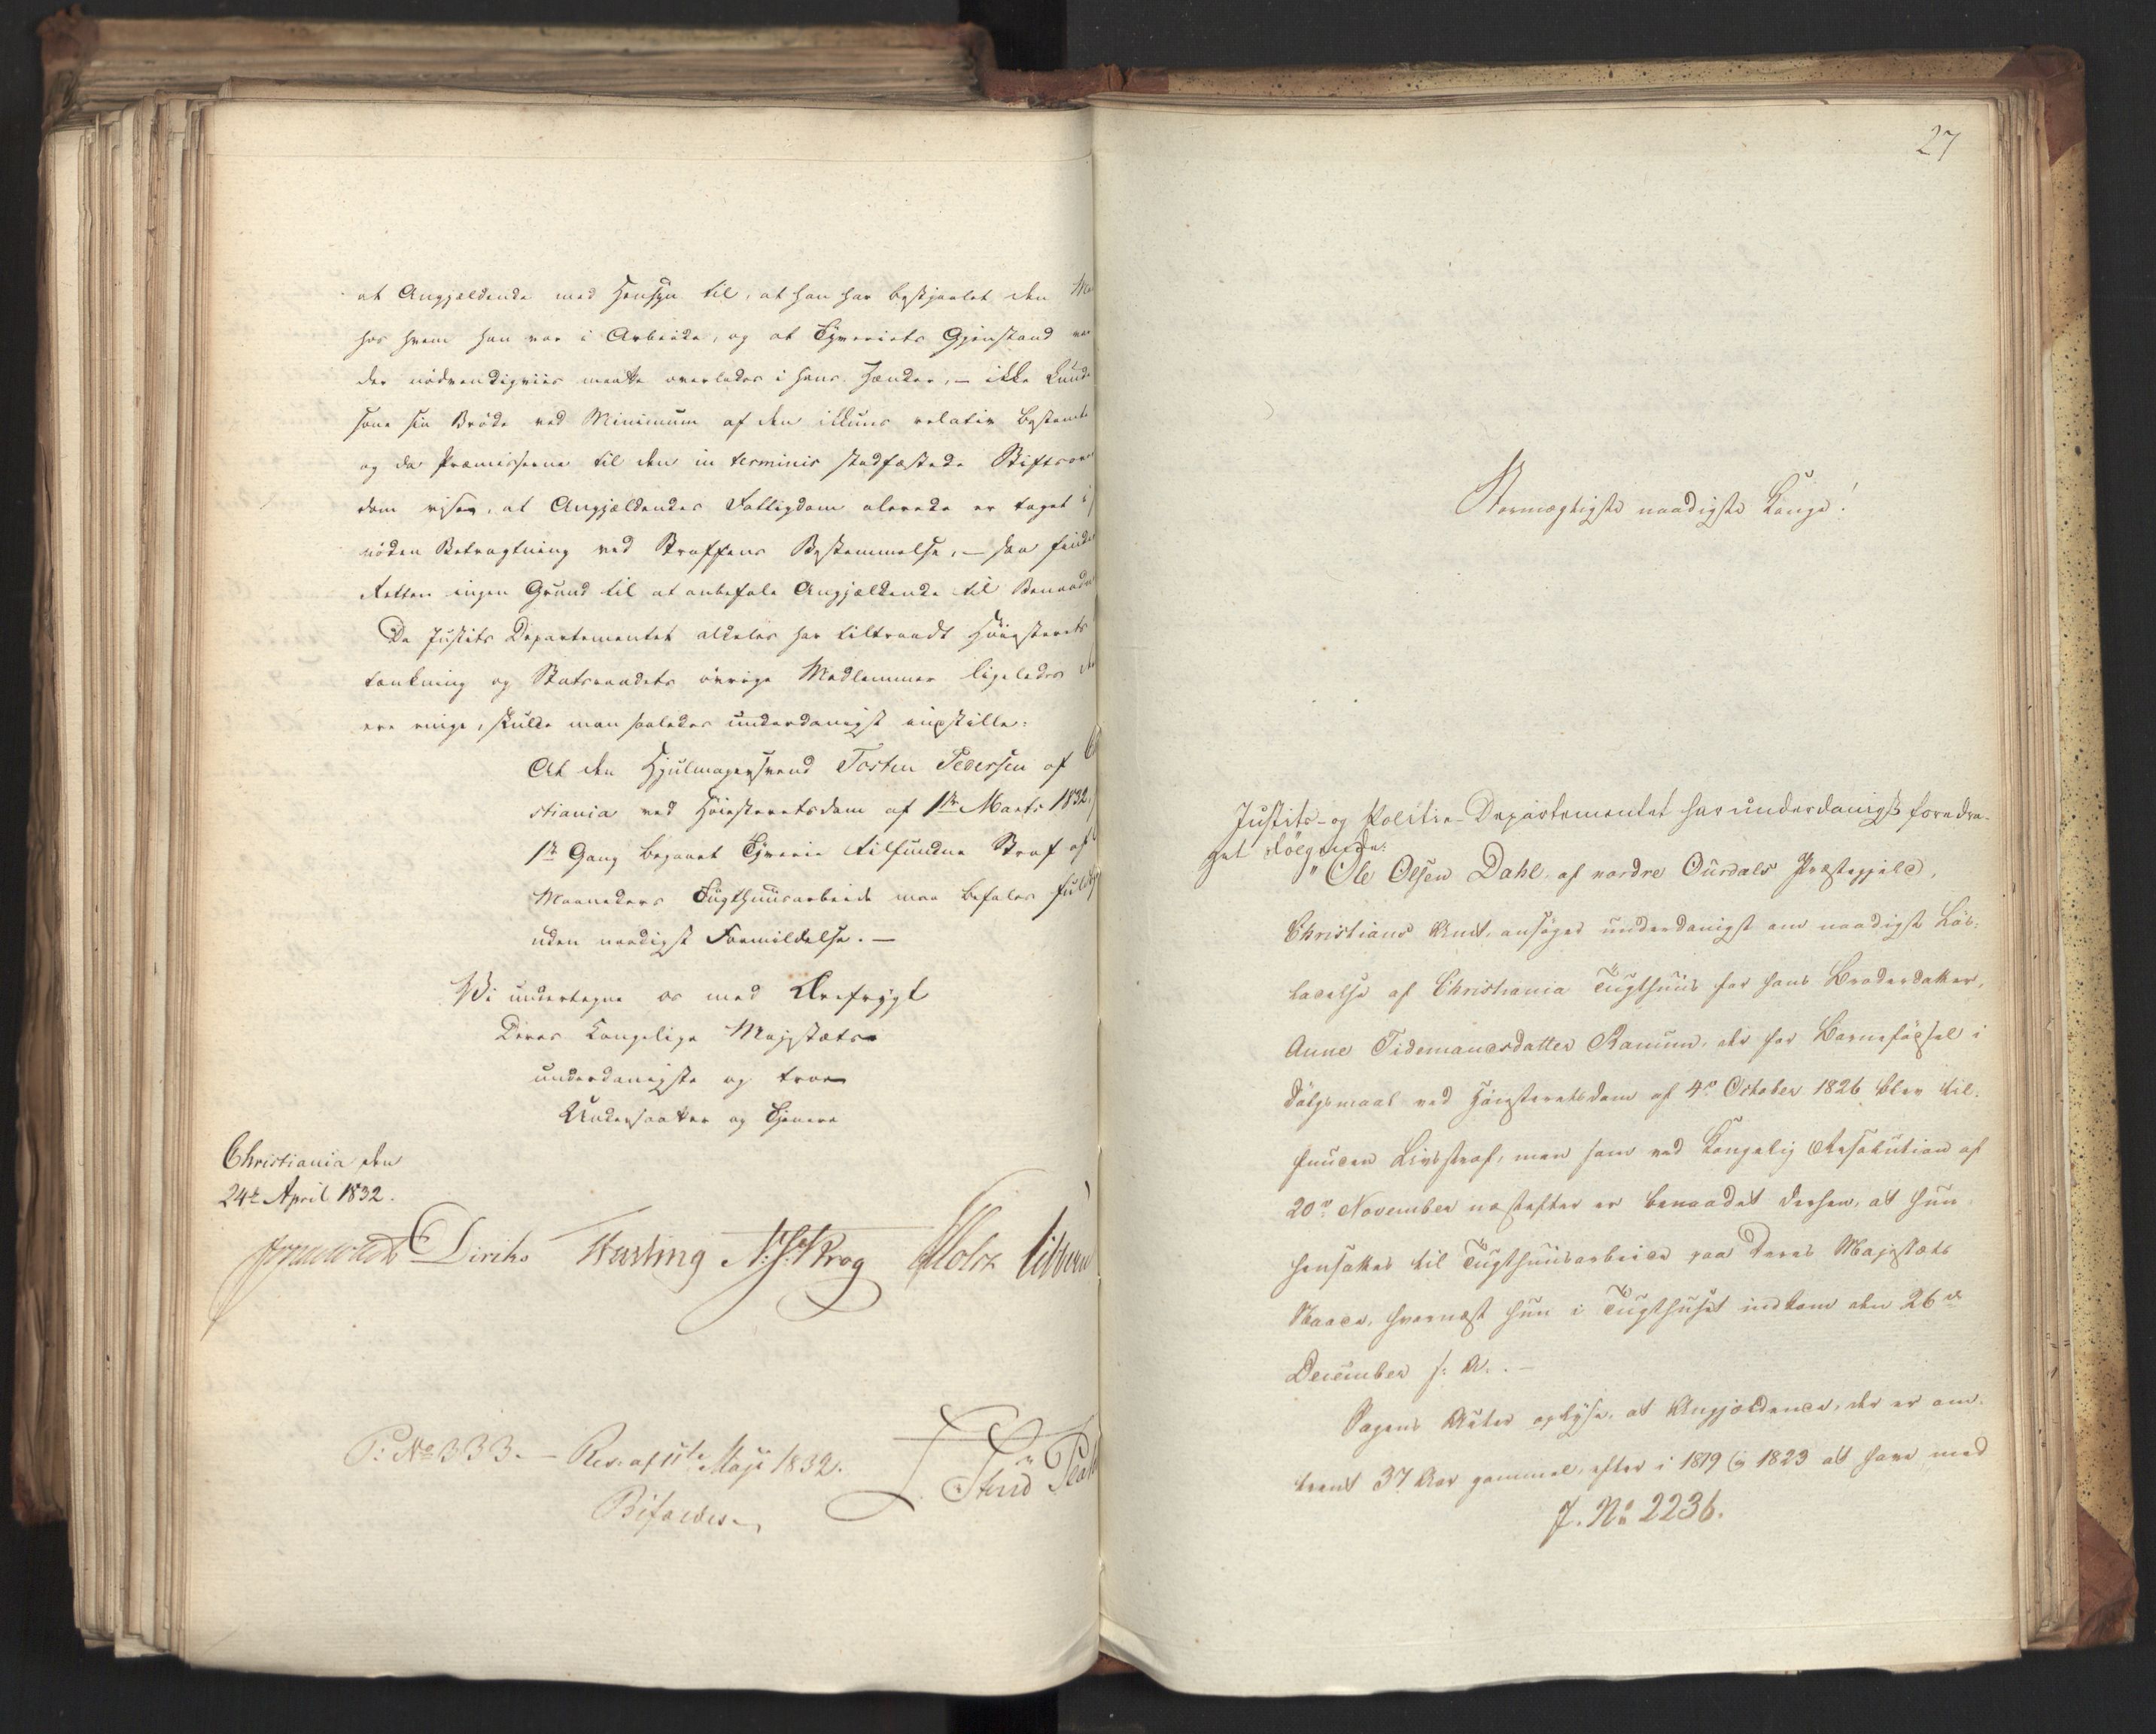 at Angjældende med Hensyn til, at han har bestjaalet den
hos hvem han var i Arbeide, og at Tyveriets Gjenstand
der nödvendigviis maatte overlades i hans Hænder, – ikke kunde
sone sin Bröde ved Minimum af den ikkuns relativ bestemte
og da Præmisserne til den in terminis stadfæstede Stiftsover
dom viser, at Angjældendes Fattigdom allerede er taget i
nöden Betragtning ved Straffens Bestemmelse, – saa finder
Retten ingen Grund til at anbefale Angjældende til Benaad
Da Justits Departementet aldeles har tiltraadt Höiesterets
tænkning og Statsraadets övrige Medlemmer ligeledes
ere enige, skulde man saaledes underdanigst indstille:
At den Hjulmagersvend Torsten Pedersen af
stiania ved Höiesteretsdom af 1ste Marts 1832,
1ste Gang begaaet Tyverie tilfundne Straf af
Maaneders Tugthuusarbeide maa befales fuldb
uden naadigst Formildelse. –
Vi undertegne os med Ærefrygt
Deres Kongelige Majestæts
underdanigste og troe
Undersaatter og Tjenere
Christiania den
24de April 1832.
Diriks Hasling Krog Holst Vibe
P: No 333. – Res. af 11te Maji 1832.
Bifaldes.
27
Stormægtigste naadigste Konge!
Justits- og Politie-Departementet har underdanigst foredra-
get fölgende:
"Ole Olsen Dahl, af nordre Ourdals Præstegjeld,
Christians Amt, ansöger underdanigst om naadigst Lös-
ladelse af Christiania Tugthuus for hans Broderdatter,
Anne Tidemandsdatter Ranum, der for Barnefösel i
Dölgsmaal ved Höiesteretsdom af 4de October 1826 blev til-
funden Livsstraf, men som ved Kongelig Resolution af
20de November næstefter er benaadet dersen, at hun
hensættes til Tugthuusarbeide paa Deres Majestæts
Naade, hvornæst hun i Tugthuset indkom den 26de
December s: A: . –
Sagens Acter oplyse, at Angjældende, der er om-
trent 37 Aar gammel, efter i 1819 og 1823 at have med
J. No 2236.